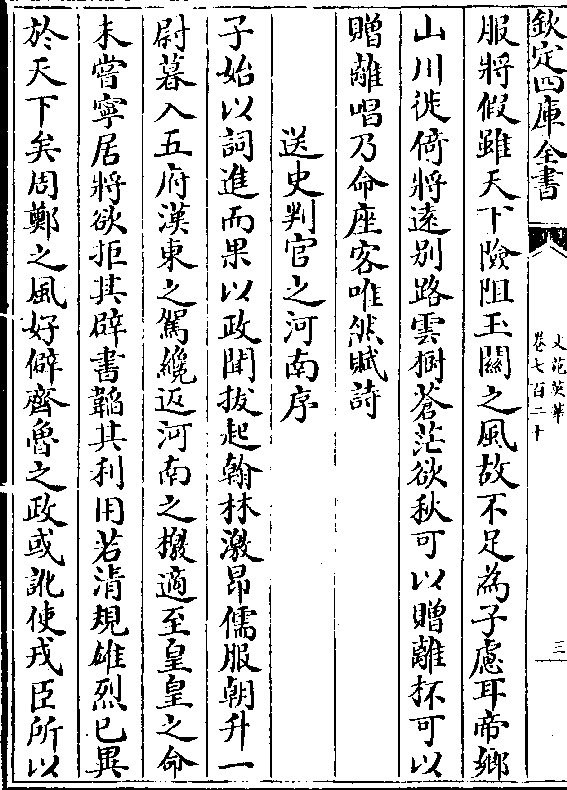 欽定四庫全書
文苑英華
卷七百二十
三
服將假雖天下險阻玉關之風故不足為子慮耳帝鄉
山川徙倚將遠别路雲樹蒼茫欲秋可以贈離杯可以
贈離唱乃命座客唯然賦詩
送史判官之河南序
子始以詞進而果以政聞拔起翰林激昂儒服朝升一
尉暮入五府漢東之駕纔返河南之檄適至皇皇之命
未嘗寧居將欲拒其辟書韜其利用若清規雄烈已異
於天下矣周鄭之風好僻齊魯之政或訛使戎臣所以